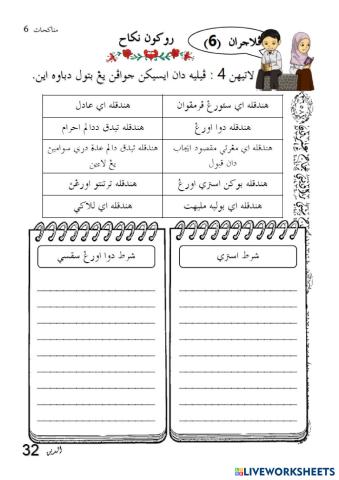 مناكحات 6
ڤلاجرن (6) روكون نكاح
لاتيهن 4 : ڤيليه دان ايسيكن جواڤن يڠ بتول دباوه اين.
هندقله اي سئورڠ ڤرمڤوان
هندقله اي عاديل
هندقله دوا اورڠ
هندقله تيدق ددالم احرام
هندقله اي مڠرتي مقصود ايجاب دان قبول
هندقله تيدق دالم عدة دري سوامين يڠ لاءين
هندقله بوكن استري اورڠ
هندقله ترتنتو اورڠن
هندقله اي بوليه مليهت
هندقله اي للاكي
شرط استري
شرط دوا اورڠ سقسي
الدين 32
LIVEWORKSHEETS